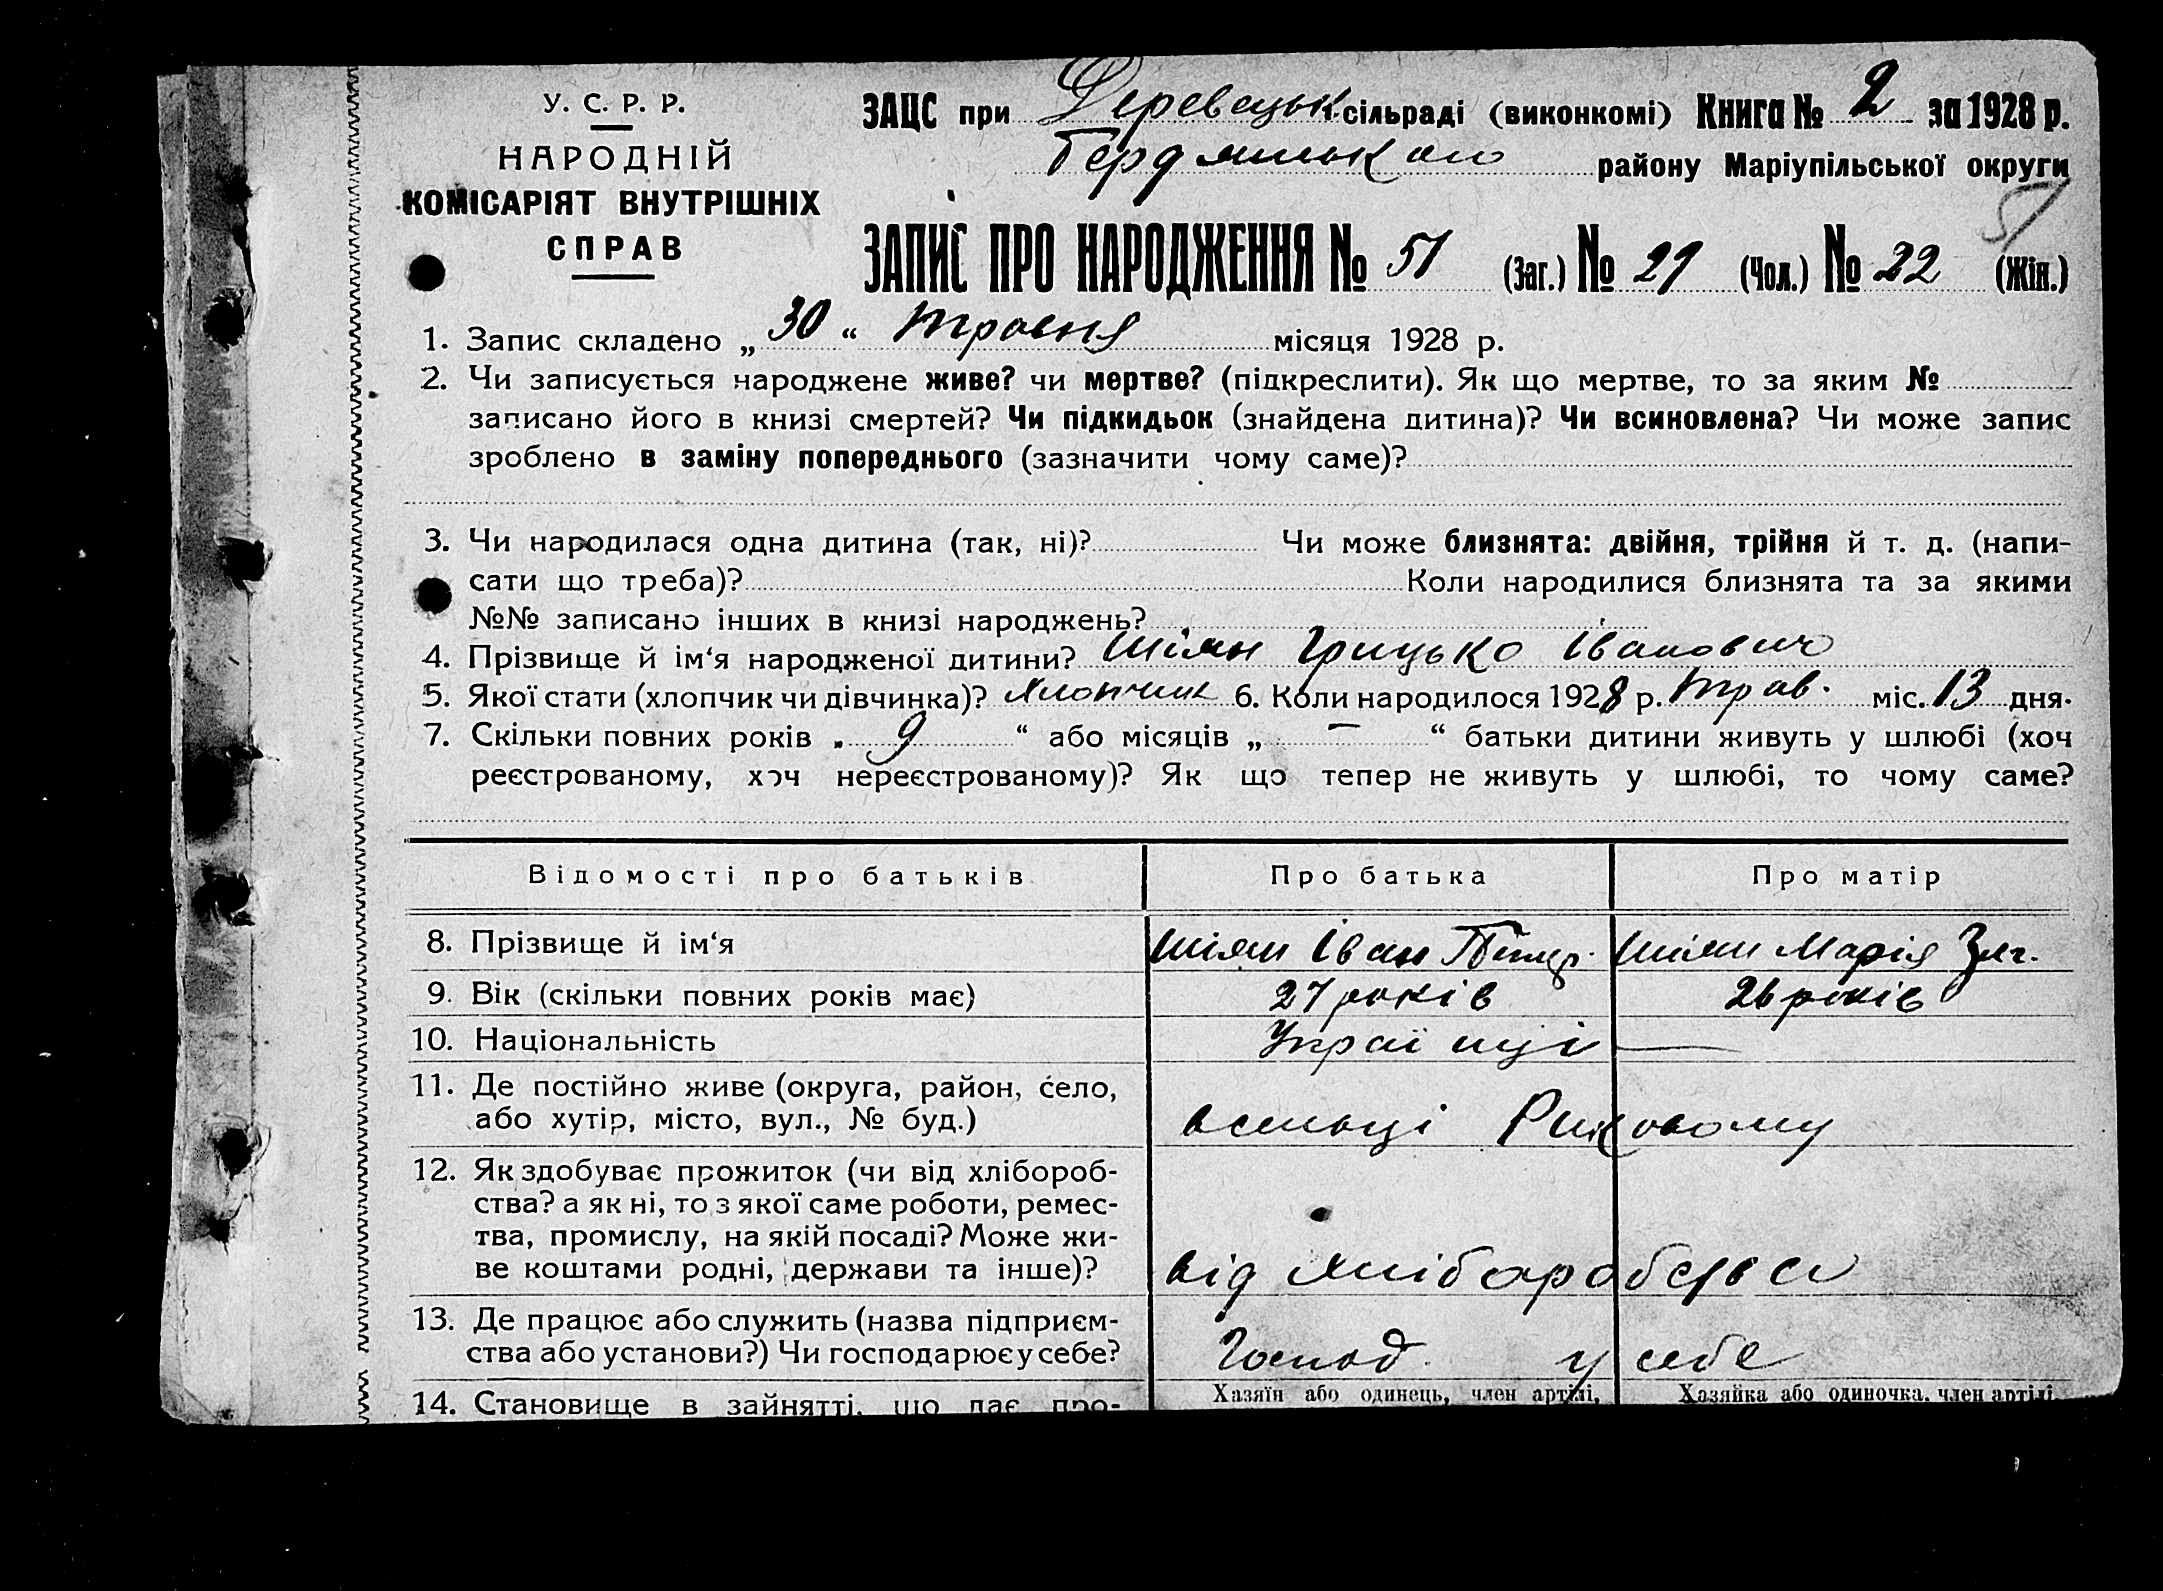 У. С. Р. Р.
НАРОДНІЙ
КОМІСАРІЯТ ВНУТРІШНІХ
СПРАВ
ЗАЦС при Деревецьк. сільраді (виконкомі) Книга № 2 за 1928 р.
Бердянського району Маріупільської округи
51
ЗАПИС ПРО НАРОДЖЕННЯ № 51 (Заг.) № 29 (Чол.) № 22 (Жін.)
1. Запис складено „ 30 “ травня місяця 1928 р.
2. Чи записується народжене живе? чи мертве? (підкреслити). Як що мертве, то за яким №
записано його в книзі смертей? Чи підкидьок (знайдена дитина)? Чи всиновлена? Чи може запис
зроблено в заміну попереднього (зазначити чому саме)?
3. Чи народилася одна дитина (так, ні)? Чи може близнята: двійня, трійня й т. д. (напи-
сати що треба)? Коли народилися близнята та за якими
№№ записано інших в книзі народжень?
4. Прізвище й ім‘я народженої дитини? Шіян Грицько Іванович
5. Якої стати (хлопчик чи дівчинка)? Хлопчик 6. Коли народилося 1928 р. трав. міс. 13 дня.
7. Скільки повних років „ 9 “ або місяців „ — “ батьки дитини живуть у шлюбі (хоч
реєстрованому, хоч нереєстрованому)? Як що тепер не живуть у шлюбі, то чому саме?
Відомості про батьків Про батька Про матір
8. Прізвище й ім‘я Шіян Іван Шіян Марія
9. Вік (скільки повних років має) 27 років 26 років
10. Національність Украї нці —
11. Де постійно живе (округа, район, село,
або хутір, місто, вул., № буд.) всельці
12. Як здобуває прожиток (чи від хлібороб-
ства? а як ні, то з якої саме роботи, ремес-
тва, промислу, на якій посаді? Може жи-
ве коштами родні, держави та інше)? від хліборобства
13. Де працює або служить (назва підприєм-
ства або установи?) Чи господарює у себе? Господ. у себе
14. Становище в зайнятті, що дає про-
Хазяїн або одинець, член артілі, Хазяйка або одиночка, член артілі,